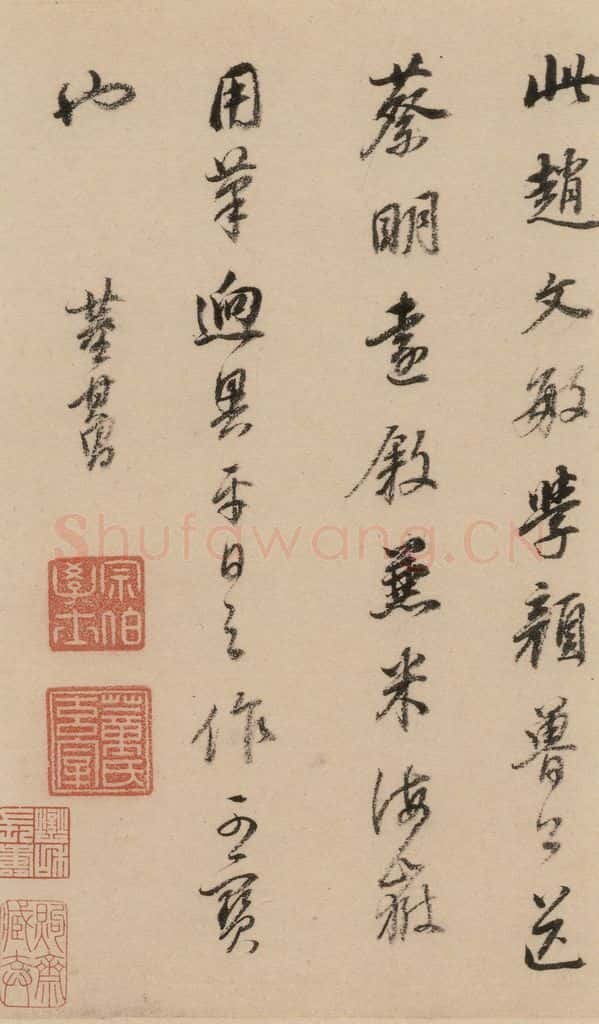 此趙文敏學顏魯公送
蔡明遠敘兼米海嶽
用筆迥異平日之作可寶
也 董其昌
宗伯學士
董氏玄宰
Shufawang.CN